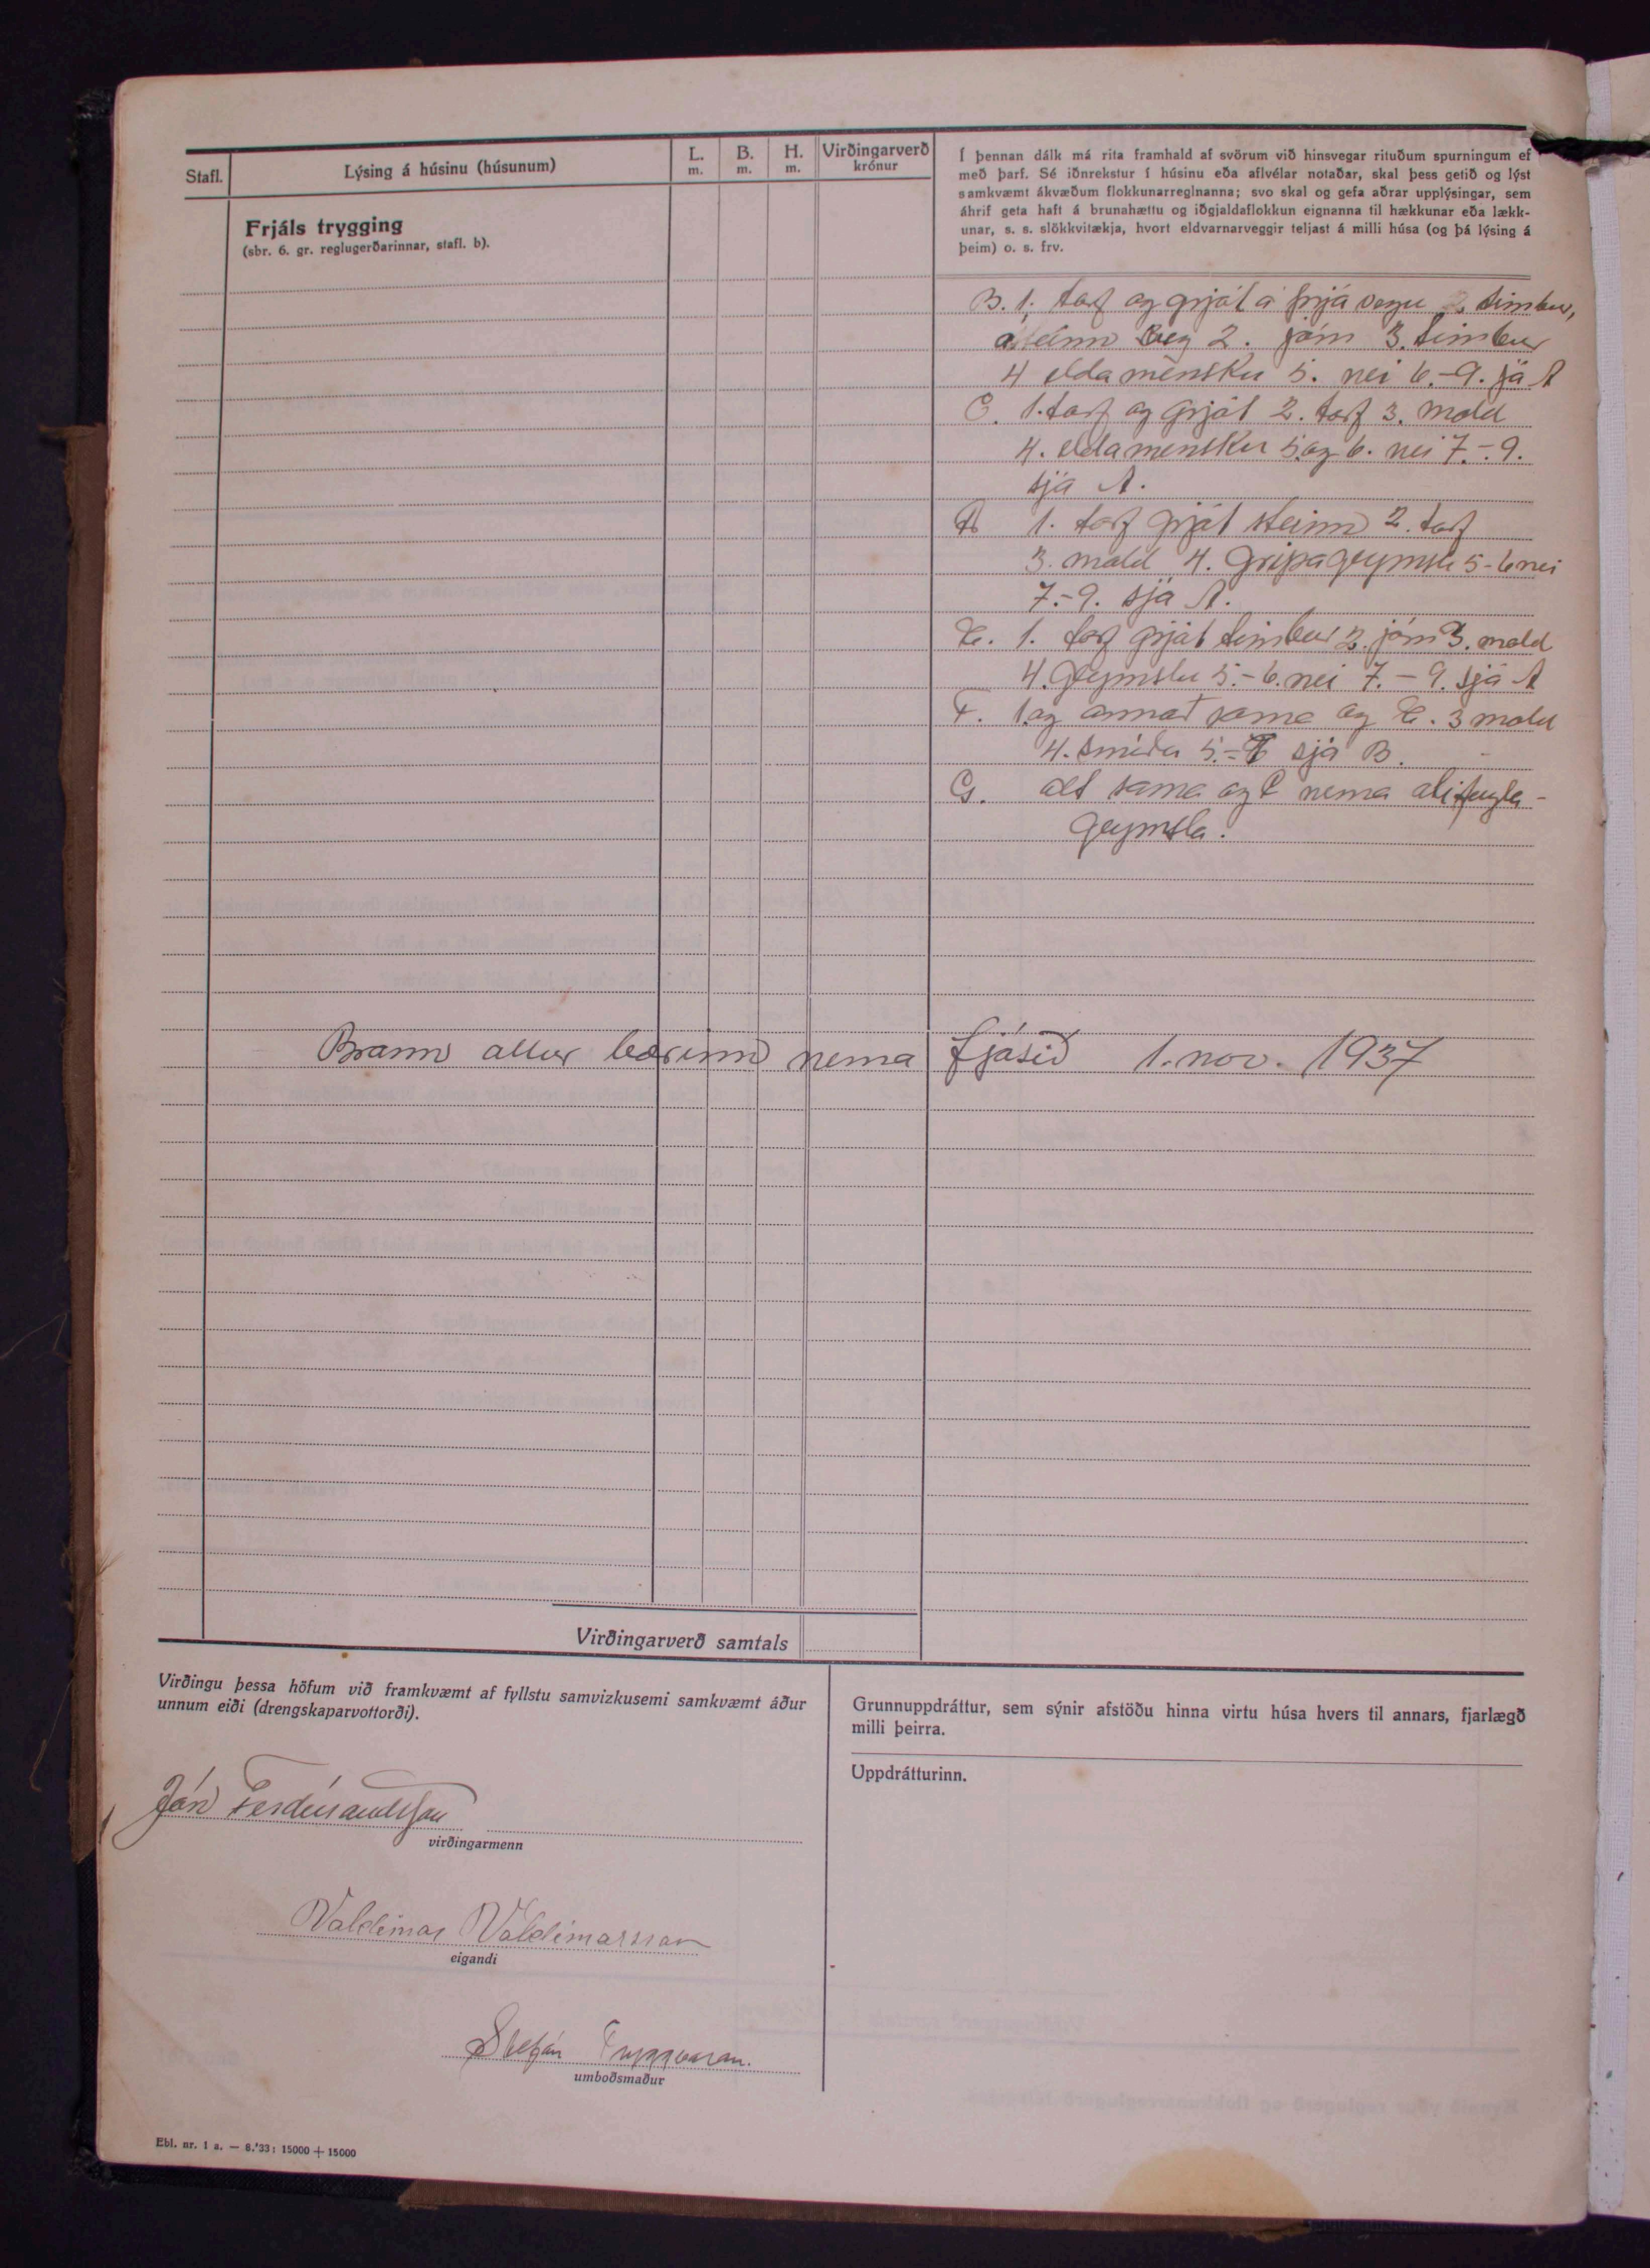 Stafl.
Lýsing á húsinu (húsunum)
L.
m.
B.
m.
H.
m.
Virðingarverð
krónur
Frjáls trygging
(sbr. 6. gr. reglugerðarinnar, stafl. b).
Í þennan dálk má rita framhald af svörum við hinsvegar rituðum spurningum ef
með þarf. Sé iðnrekstur í húsinu eða aflvélar notaðar, skal þess getið og lýst
samkvæmt ákvæðum flokkunarreglnanna; svo skal og gefa aðrar upplýsingar, sem
áhrif geta haft á brunahættu og iðgjaldaflokkun eignanna til hækkunar eða lækk-
unar, s. s. slökkvitækja, hvort eldvarnarveggir teljast á milli húsa (og þá lýsing á
þeim) o. s. frv.
B. 1. torf og grjót á þrjá vegu timbur,
á einn veg 2. járn 3. timbur
4 eldamensku 5. nei 6.-9. sjá A
C. 1. torf og grjót 2. torf 3. mold
4. eldamensku 5. og 6. nei 7.-9.
sjá A.
D 1. torf grjót steinn 2. torf
3. mold 4. Gripageymslu 5-6 nei
7.-9. sjá A.
E. 1. torf grjót timbur 2. járn 3. mold
4. Geymslu 5.-6. nei 7.-9. sjá A
F. 1. og annað sama og E. 3 mold
4. smíða 5.- sjá B.
G. alt sama og C nema alifugla-
geymsla.
Brann allur bærinn nema fjósið 1. nov. 1937
Virðingarverð samtals
Virðingu þessa höfum við framkvæmt af fyllstu samvizkusemi samkvæmt áður
unnum eiði (drengskaparvottorði).
Jón Ferdínandsson
virðingarmenn
Valdimar Valdimarsson
eigandi
Stefán Tryggvason.
umboðsmaður
Grunnuppdráttur, sem sýnir afstöðu hinna virtu húsa hvers til annars, fjarlægð
milli þeirra.
Uppdrátturinn.
Ebl. nr. 1 a. — 8.'33: 15000 + 15000